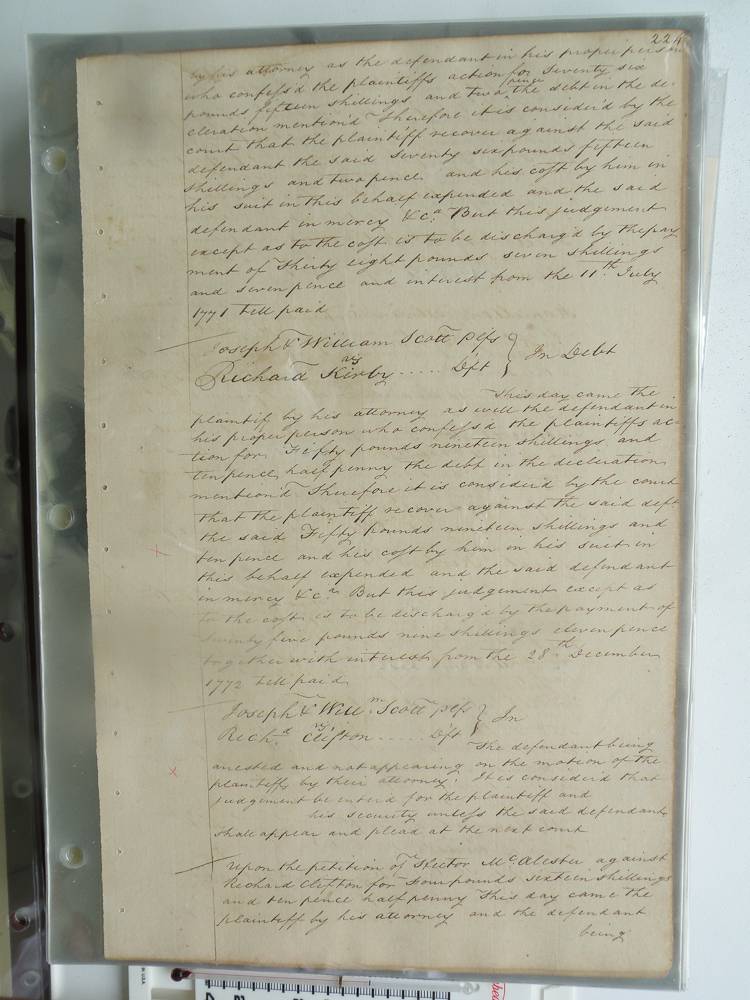 224
by his attorney as the defendant in his proper person
who confess'd the plaintiffs action for Seventy six
pounds fifteen shillings and two pence the debt in the de-
claration mention'd Therefore it is consider'd by the
court that the plaintiff recover against the said
defendant the said Seventy six pounds fifteen
shillings and two pence and his cost by him in
his suit in this behalf expended and the said
defendant in mercy &ca. But this judgement
except as to the cost is to be discharg'd by the pay
ment of Thirty eight pounds seven shillings
and seven pence and interest from the 11th July
1771 till paid
Joseph & William Scott plfs } In Debt
vs
Richard Kirby ..... Dft
This day came the
plaintif by his attorney as well the defendant in
his proper person who confess'd the plaintiffs ac-
tion for Fifty pounds nineteen shillings and
ten pence half penny the debt in the decleration
mention'd Therefore it is consider'd by the court
that the plaintiff recover against the said deft
the said Fifty Pounds nineteen shillings and
ten pence and his cost by him in his suit in
this behalf expended and the said defendant
in mercy &ca. But this judgement except as
to the cost is to be discharg'd by the payment of
Seventy five pounds nine shillings eleven pence
together with interest from the 28th December
1772 till paid
Joseph & Willm Scott plfs } In
vs
Richd. Clifton ...... Dft
The defendant being
arrested and not appearing on the motion of the
plaintiffs by their attorney. It is consider'd that
judgement be enterd for the plaintiff and
his security unless the said defendant
shall appear and plead at the next court
Upon the petition of Hector Mc.Alester against
Richard Clifton for Four pounds sixteen shillings
and ten pence half penny This day came the
plaintiff by his attorney and the defendant
being